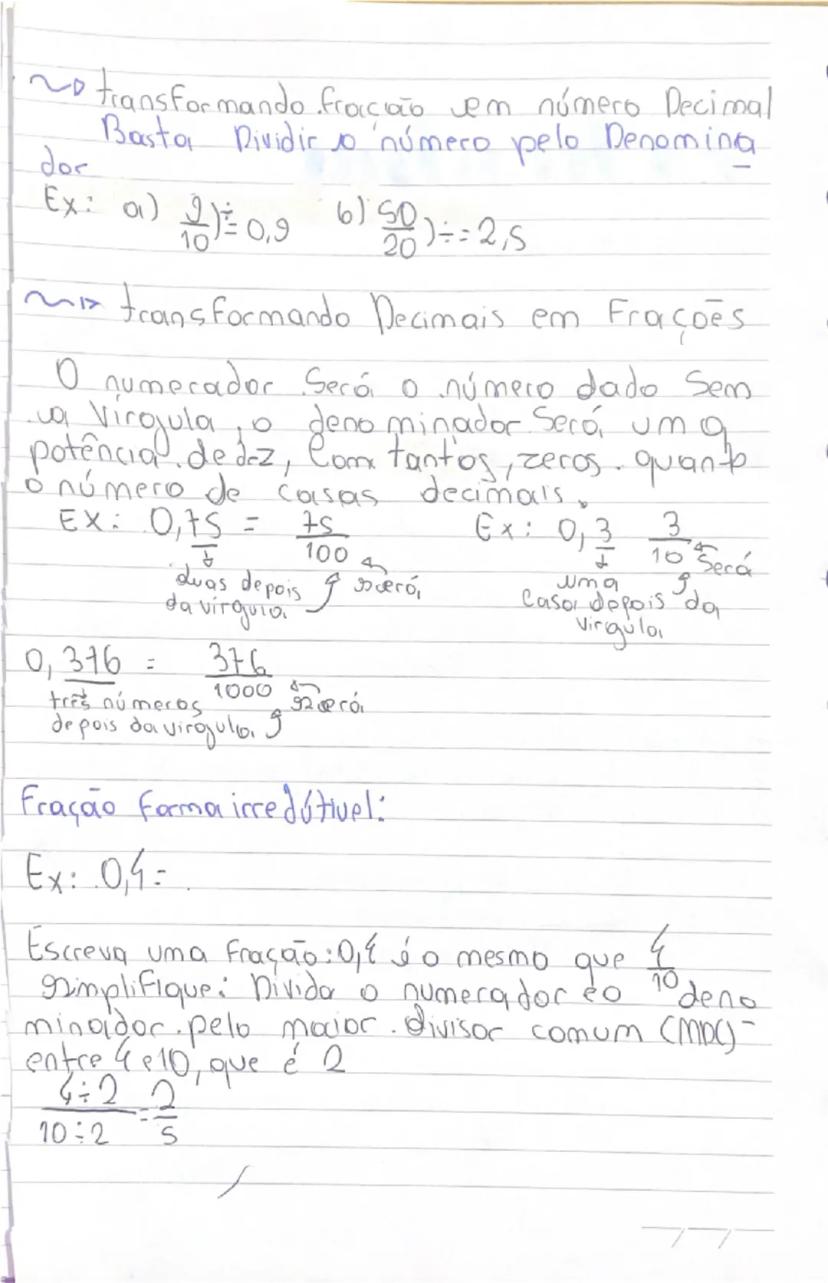 transformando fração em número Decimal
Basta Dividir o número pelo Denomina
dor
Ex: a) 9/10 ) ÷ = 0,9 b) 50/20 ) ÷ = 2,5
transformando Decimais em Frações
O numerador Será o número dado Sem
a Vírgula, o denominador Será uma
potência de dez, Com tantos, zeros. quanto
o número de casas decimais.
Ex: 0,75 = 75/100 Ex: 0,3 3/10 Será
duas depois será uma
da vírgula casa depois da
virgula
0,376 = 376/1000
três números será
depois da vírgula
Fração forma irredútivel:
Ex: 0,4 =
Escreva uma fração: 0,4 é o mesmo que 4/10
simplifique: Divida o numerador e o deno
minador pelo maior divisor comum (MDC)-
entre 4 e 10, que é 2
4÷2/10÷2 = 2/5